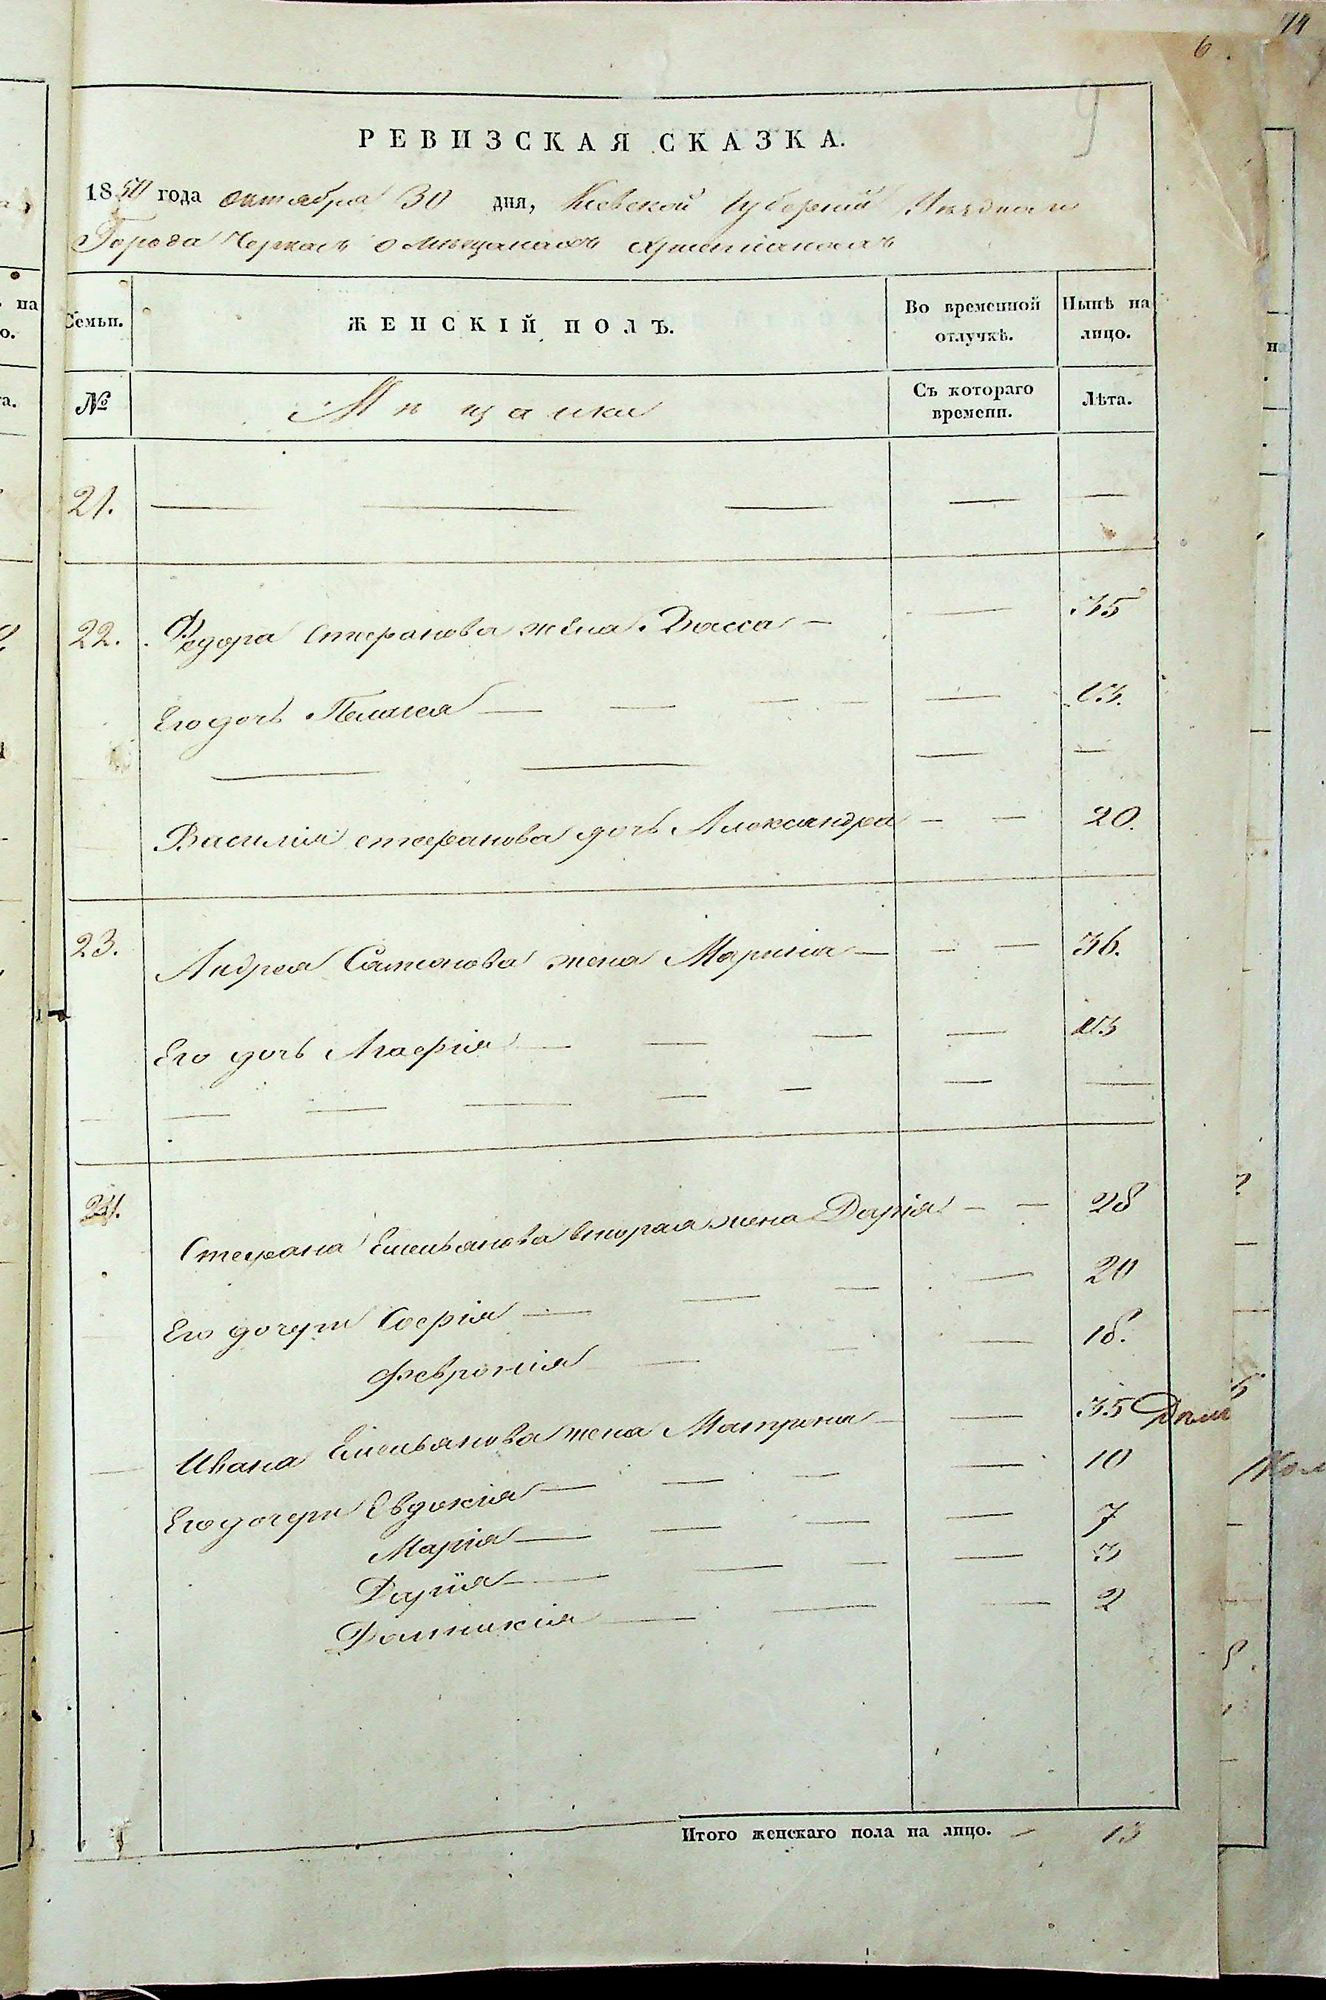 74
6.
9
РЕВИЗСКАЯ СКАЗКА.
1850 года октября 30 дня, Киевской Губернии Уезднаго
Города Черкасъ о мѣщанахъ христіанахъ
Семьи. ЖЕНСКІЙ ПОЛЪ. Во временной отлучкѣ. Нынѣ на лицо.
№ Мѣщанки Съ котораго времени. Лѣта.
21. — — — — —
22. Федора Стефанова жена Васса — — 35
Его дочь Пелагея — — — — — 13.
— — — —
Василія стефанова дочь Александра — — 20.
23. Андрея Самсонова жена Марина — — — 36.
Его дочь Агафія — — — — 13
— — — — — — —
24. Стефана Емельянова вторая жена Дарія — — 28
Его дочери Софія — — — — 20
Феврония — — — 18.
Ивана Емельянова жена Матрона — — 35
Его дочери Евдокія — — — — 10
Марія — — — — 7
Дарія — — — — 3
Домникія — — — 2
Итого женскаго пола на лицо. — 13